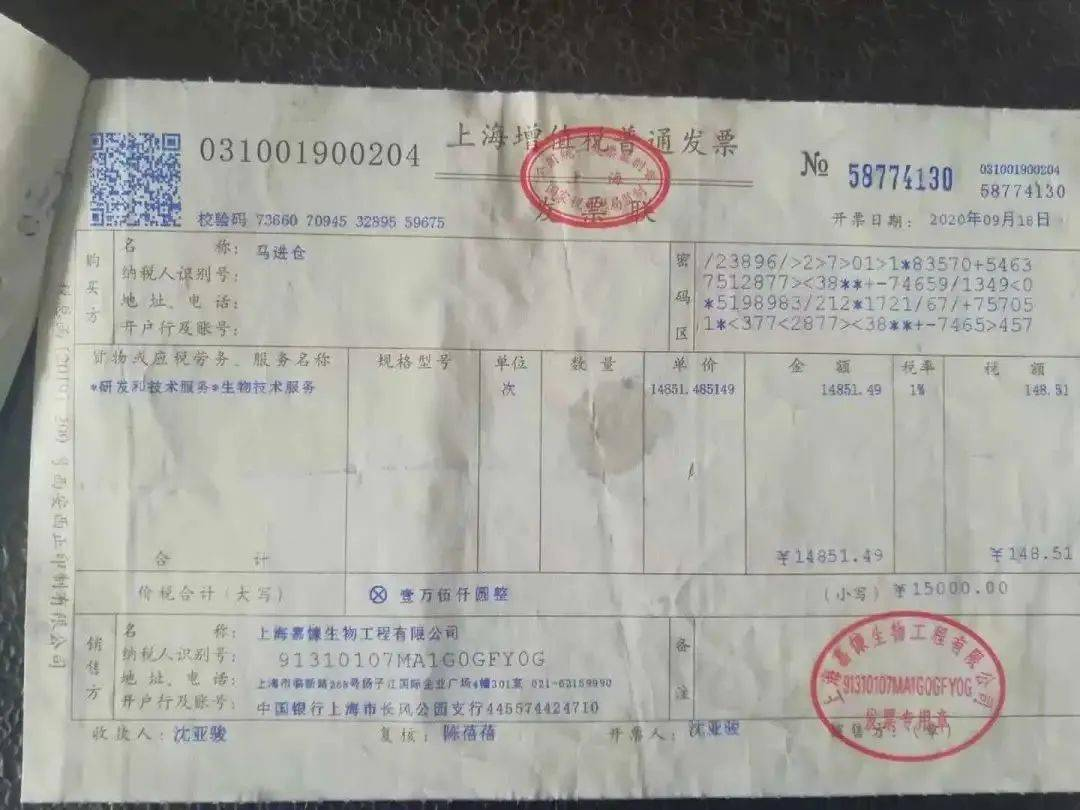 031001900204
上海增值税普通发票
发票联
全国统一发票监制章
上海
国家税务总局监制
№ 58774130
031001900204
58774130
校验码 73660 70945 32895 59675
开票日期: 2020年09月18日
购买方
名称: 马进仓
纳税人识别号:
地址、电话:
开户行及账号:
密码区
/23896/>2>7>01>1*83570+5463
7512877><38**+-74659/1349<0
*5198983/212*1721/67/+75705
1*<377<2877><38**+-7465>457
货物或应税劳务、服务名称 规格型号 单位 数量 单价 金额 税率 税额
*研发和技术服务*生物技术服务 次 14851.485149 14851.49 1% 148.51
合计 ¥14851.49 ¥148.51
价税合计(大写) ⊗ 壹万伍仟圆整 (小写) ¥15000.00
销售方
名称: 上海嘉慷生物工程有限公司
纳税人识别号: 91310107MA1G0GFY0G
地址、电话: 上海市临新路268号扬子江国际企业广场4幢301室 021-62159990
开户行及账号: 中国银行上海市长风公园支行445574424710
备注
上海嘉慷生物工程有限公司
91310107MA1G0GFY0G
发票专用章
收款人: 沈亚骏 复核: 陈蓓蓓 开票人: 沈亚骏 销售方:(章)
西安西正印制有限公司